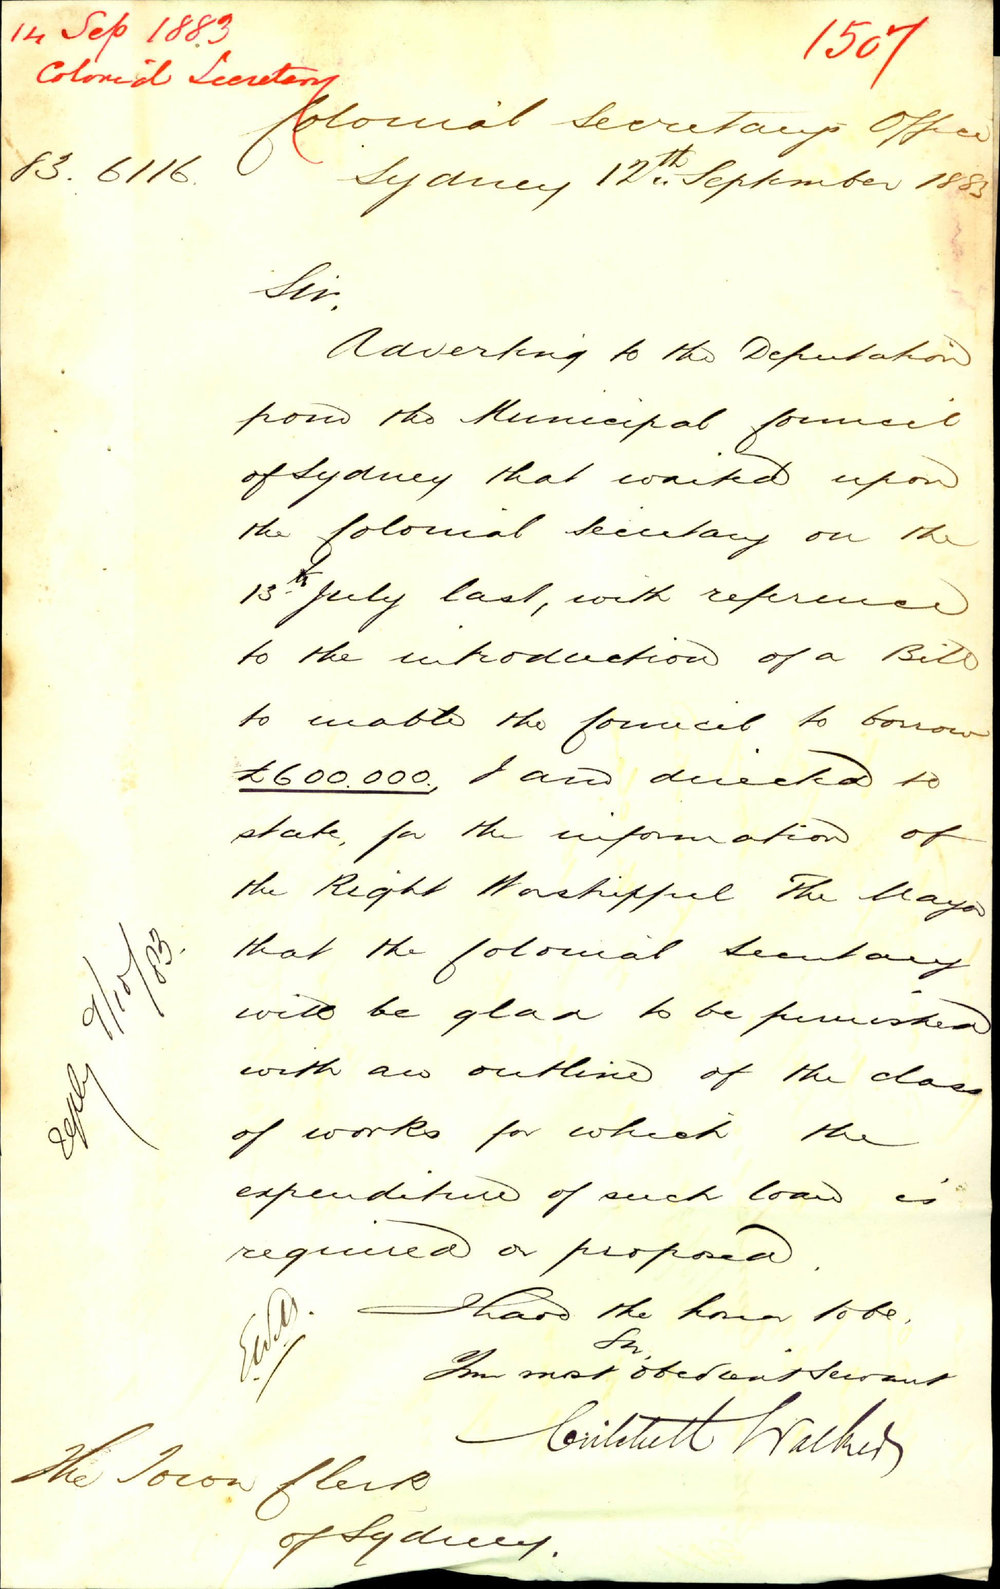 14 Sep 1883
Colonial Secretary
1507
Colonial Secretary's Office
83. 6116.
Sydney 12th September 1883
Sir,
Adverting to the Deputation
from the Municipal Council
of Sydney that waited upon
the Colonial Secretary on the
13th July last, with reference
to the introduction of a Bill
to enable the Council to borrow
£600.000., I am directed to
state, for the information of
the Right Worshipful The Mayor
that the Colonial Secretary
will be glad to be furnished
with an outline of the class
of works for which the
expenditure of such loan is
required or proposed.
I have the honor to be,
Sir,
Your most obedient Servant
Critchett Walker
The Town Clerk
of Sydney.
Reply 9/10/83.